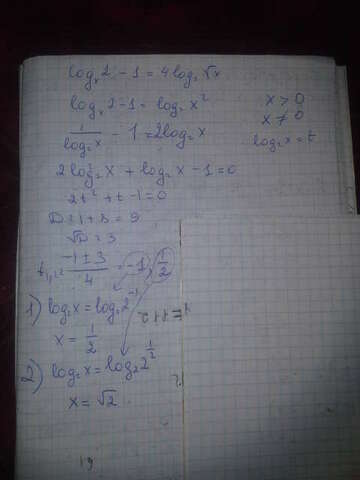 logₓ2 - 1 = 4log₂√x
logₓ2 - 1 = log₂x² x > 0
x ≠ 0
1/log₂x - 1 = 2log₂x log₂x = t
2log₂²x + log₂x - 1 = 0
2t² + t - 1 = 0
D = 1 + 8 = 9
√D = 3
t₁,₂ = (-1 ± 3)/4 = -1, 1/2
1) log₂x = log₂2⁻¹
x = 1/2
2) log₂x = log₂2^(1/2)
x = √2
19